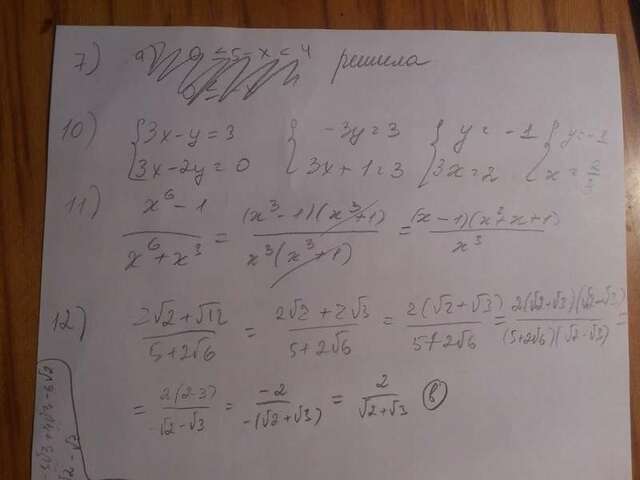 7) решила
10) {3x-y=3 { -3y=3 { y=-1 { y=-1
{3x-2y=0 { 3x+1=3 {3x=2 { x=
11) x⁶-1 / x⁶+x³ = (x³-1)(x³+1) / x³(x³+1) = (x-1)(x²+x+1) / x³
12) 2√2+√12 / 5+2√6 = 2√2+2√3 / 5+2√6 = 2(√2+√3) / 5+2√6 = 2(√2+√3)(√2-√3) / (5+2√6)(√2-√3) =
= 2(2-3) / -√2-√3 = -2 / -(√2+√3) = 2 / √2+√3 (в)